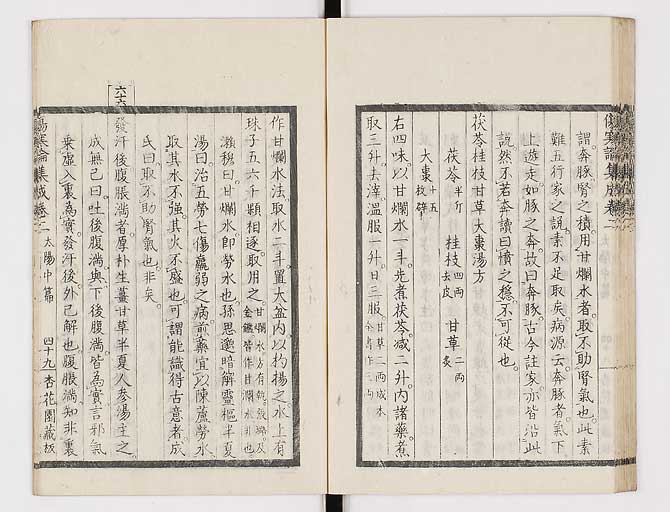 謂奔豚腎之積用甘爛水者取不助腎氣也此素
難五行家之説素不足取矣病源云奔豚者氣下
上遊走如豚之奔故曰奔豚古今註家亦皆沿此
説然不若奔讀曰憤之穩不可從也
茯苓桂枝甘草大棗湯方
茯苓半斤 桂枝四兩去皮 甘草二兩炙
大棗十五枚擘
右四味以甘爛水一斗先煮茯苓減二升内諸藥煮
取三升去滓温服一升日三服
作甘爛水法取水二斗置大盆内以杓揚之水上有
珠子五六千顆相逐取用之
瀨穆曰甘爛水即勞水也孫思邈暗解靈樞半夏
湯曰治五勞七傷羸弱之病煎藥宜以陳蘆勞水
取其水不强其火不盛也可謂能識得古意者成
氏曰取不助腎氣也非矣
六十六 發汗後腹脹滿者厚朴生薑甘草半夏人參湯主之
成無己曰吐後腹滿與下後腹滿皆為實言邪氣
乘虚入裏為實發汗後外已解也腹脹滿知非裏
傷寒論集成卷二 太陽中篇 四十九 杏花園藏板